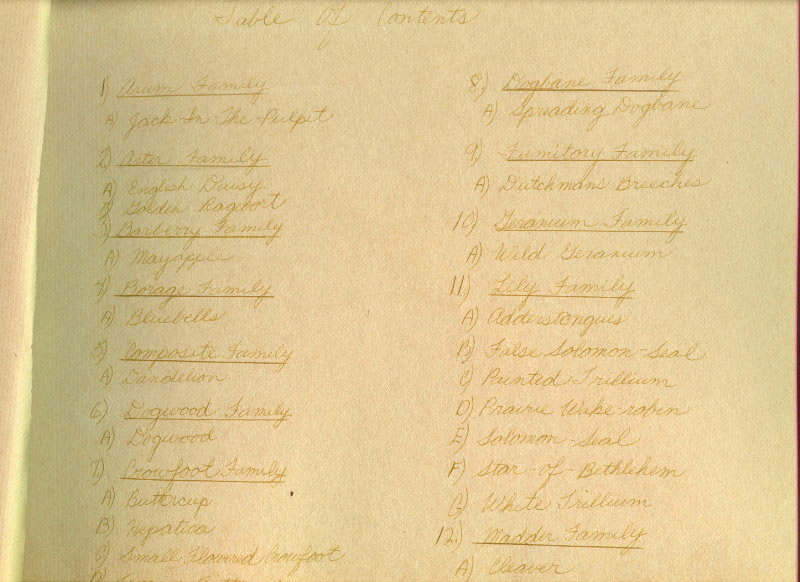 Table Of Contents
1) Arum Family
A) Jack-In-The-Pulpit
2) Aster Family
A) English Daisy
B) Golden Ragwort
3) Barberry Family
A) Mayapple
4) Borage Family
A) Bluebells
5) Composite Family
A) Dandelion
6) Dogwood Family
A) Dogwood
7) Crowfoot Family
A) Buttercup
B) Hepatica
C) Small Flowered Crowfoot
8.) Dogbane Family
A) Spreading Dogbane
9) Fumitory Family
A) Dutchmans Breeches
10) Geranium Family
A) Wild Geranium
11) Lily Family
A) Adderstongues
B) False Solomon-Seal
C) Painted Trillium
D) Prairie Wake-robin
E) Solomon-Seal
F) Star-of-Bethlehem
G) White Trillium
12.) Madder Family
A) Cleaver